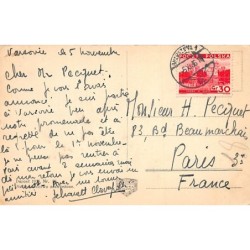 Varsovie le 5 novembre
Cher Mr Pecquet.
Comme je vous l'avais
annoncé, je suis partie
à Varsovie peu après
notre promenade et ai
regretté de ne pas être
là pour le 1er novembre.
je ne pense pas rentrer à
Paris avant 2 semaines mais
dès mon retour je vous
amitié.
POCZTA POLSKA
30
Monsieur H Pecquet
83, Bd Beaumarchais
Paris 3e
France